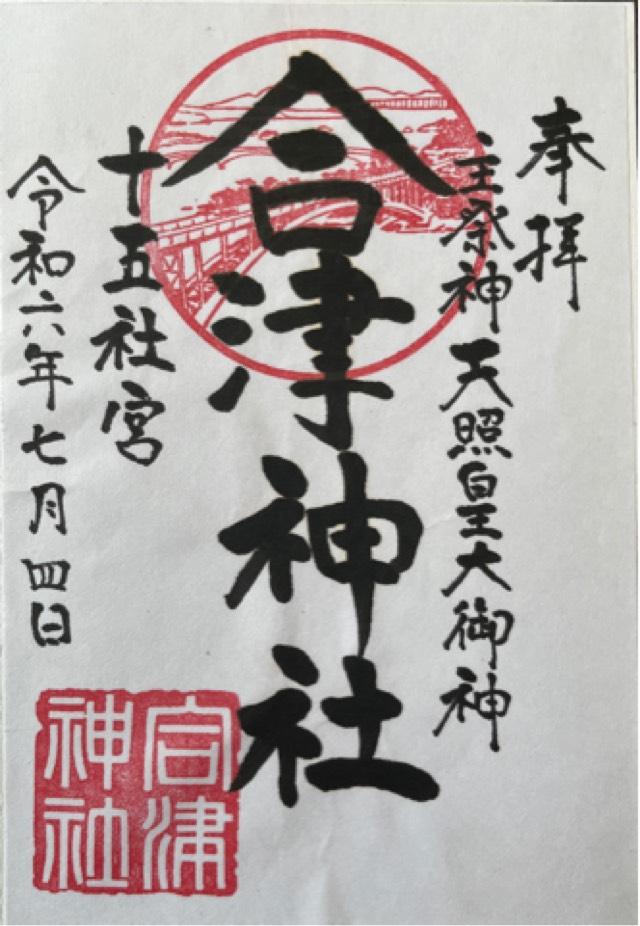 奉拝
主祭神 天照皇大御神
合津神社
十五社宮
令和六年七月四日
合津
神社